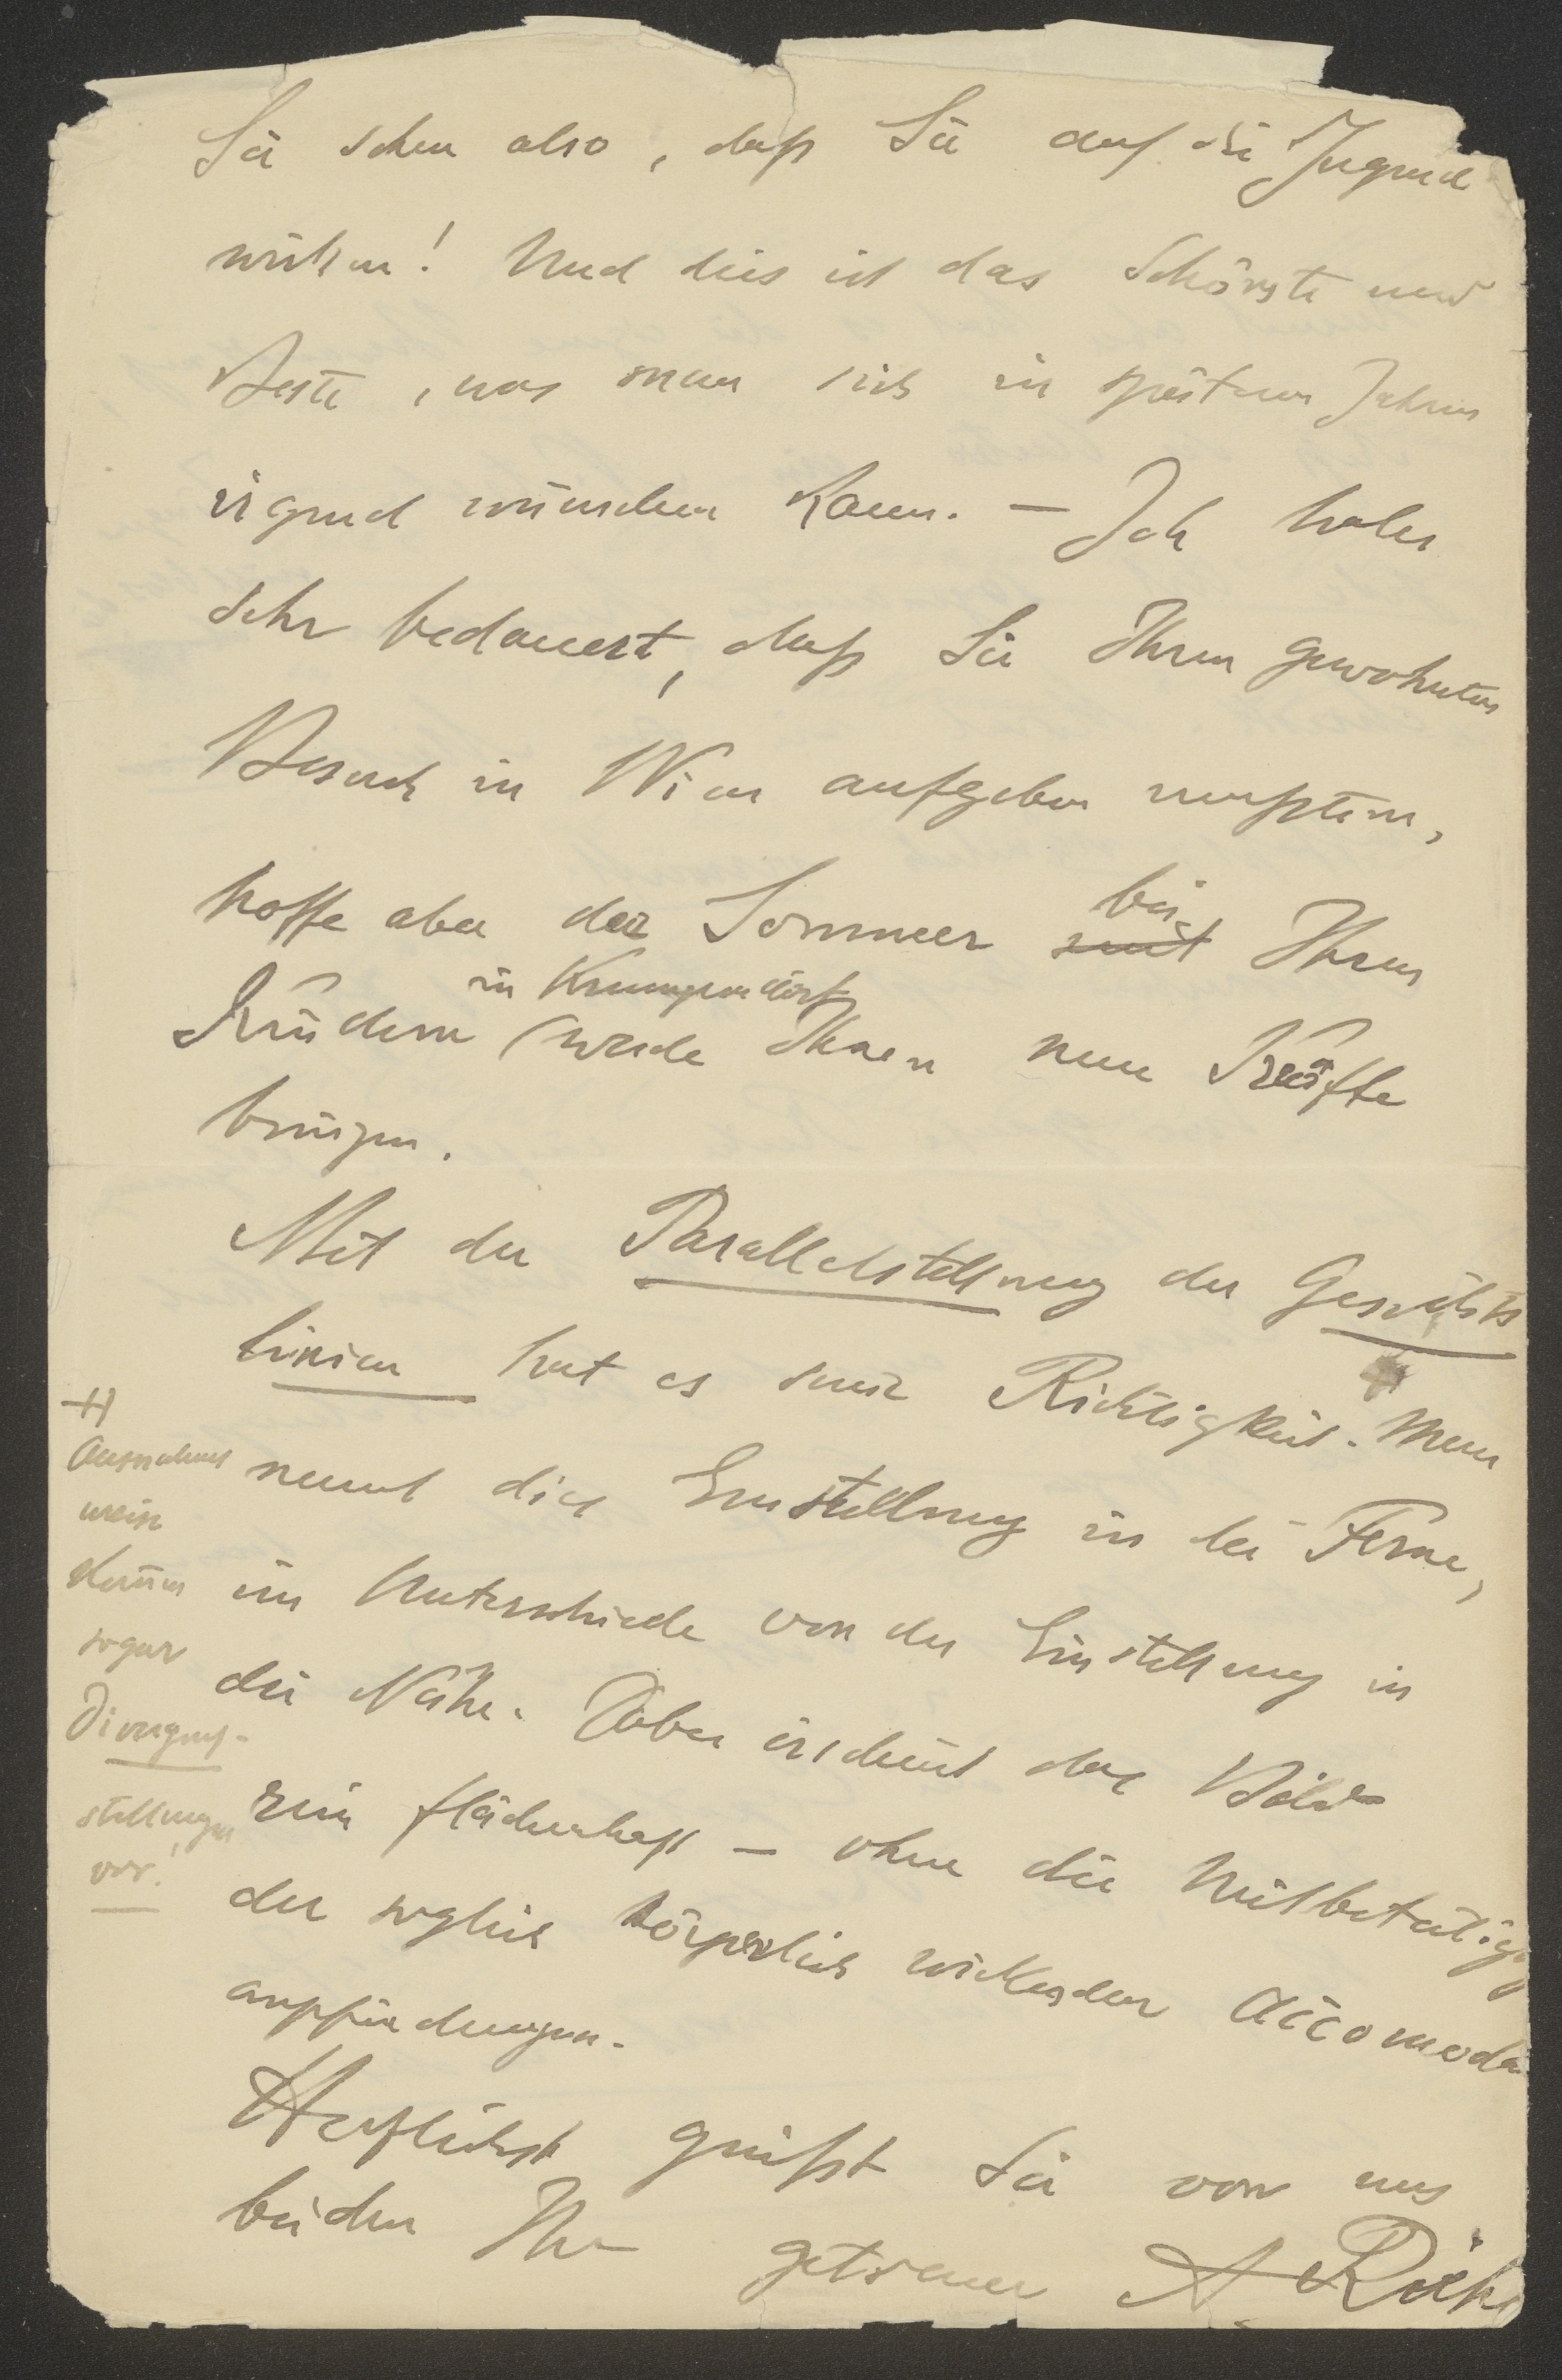 Sie sehen also, daß Sie auf die Jugend
wirken! Und dies ist das Schönste und
Beste, was man sich in späteren Jahren
irgend wünschen kann. — Ich habe
sehr bedauert, daß Sie Ihren gewohnten
Besuch in Wien aufgeben mussten,
hoffe aber der Sommer mit bei Ihren
Kindern in Krumpendorf werde Ihnen neue Kräfte
bringen.
Mit der Parallelstellung der Gesichts
linien hat es seine Richtigkeit. Man
nennt dies Einstellung in die Ferne,
im Unterschiede von der Einstellung in
die Nähe. Dabei erscheint das Bild
rein flächenhaft — ohne die Mitbetätigung
der sogleich körperlich wirkenden Accomoda
empfindungen.
Herzlichst grüßt Sie von uns
beiden Ihr getreuer A. Riehl
Ausnahms
weise
kommen
sogar
Divergenz-
stellungen
vor!